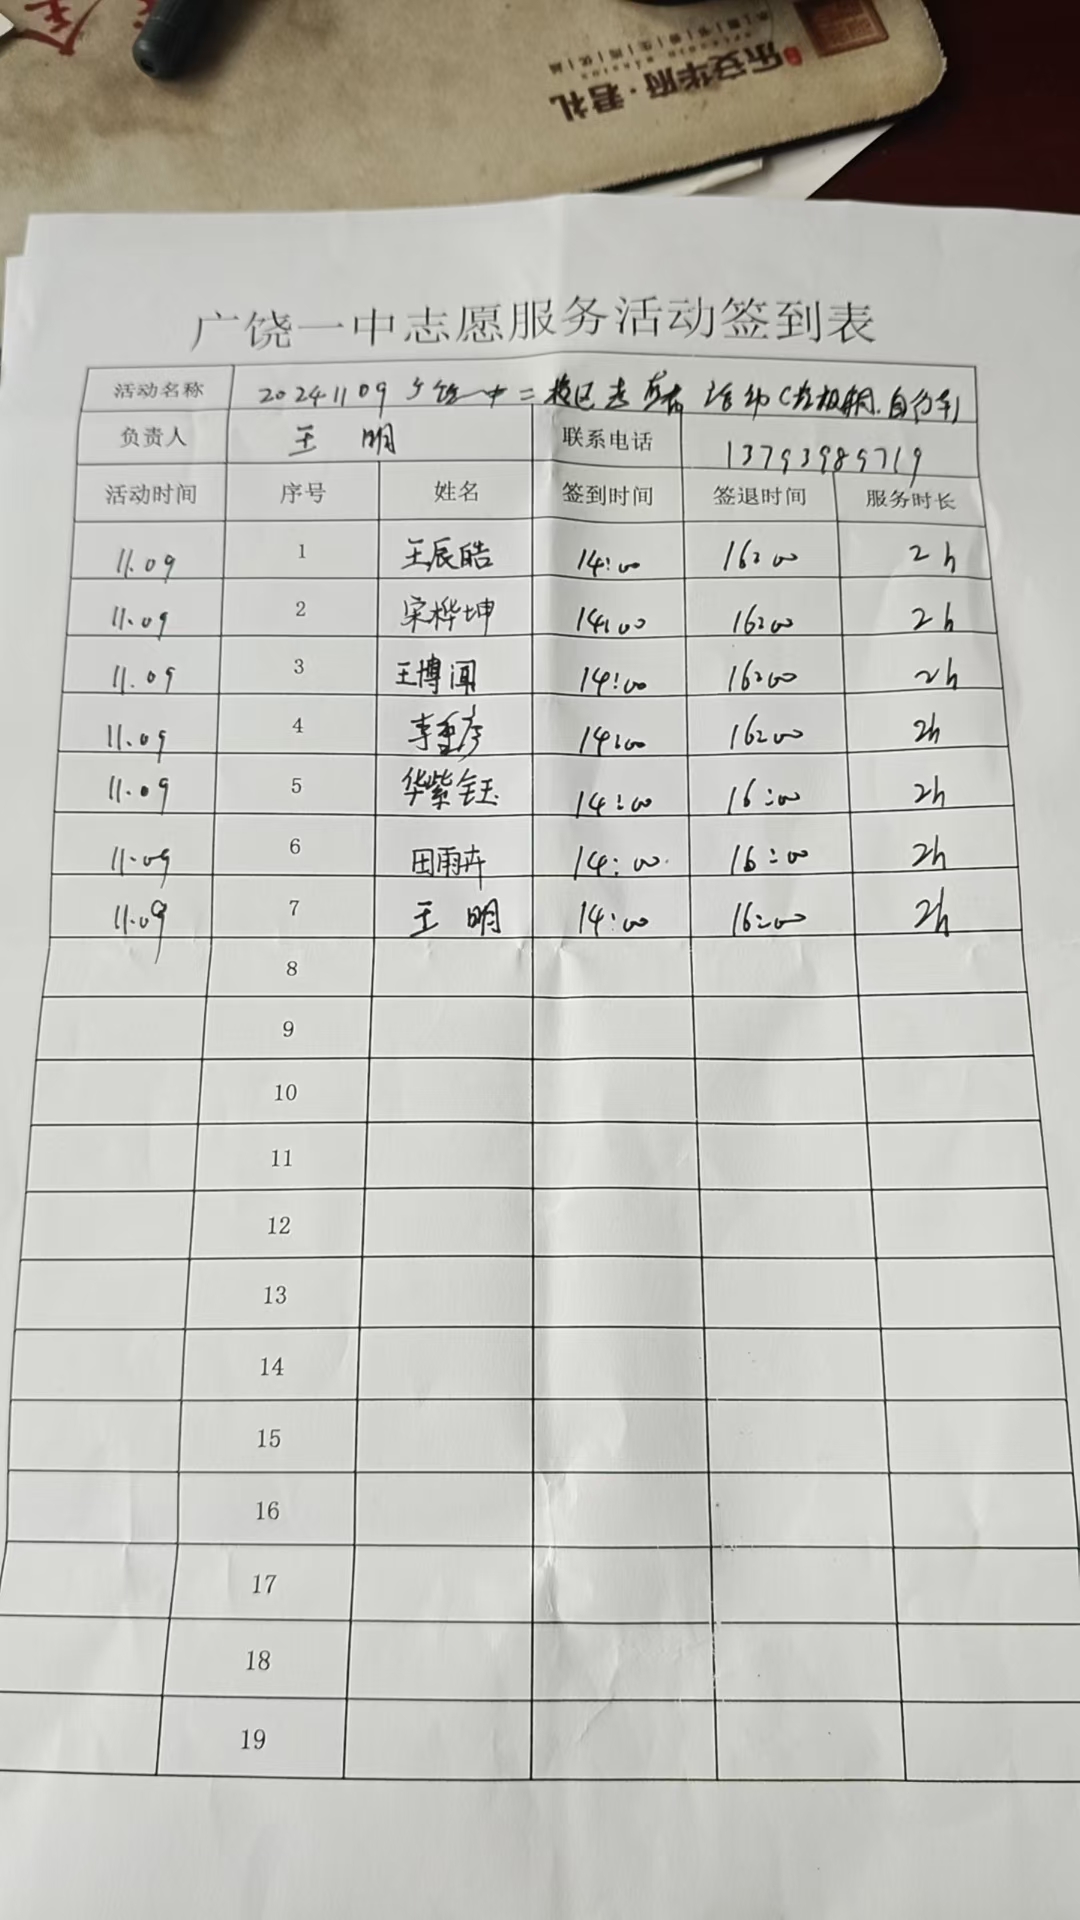 乐安华府·君礼
广饶一中志愿服务活动签到表
活动名称 20241109广饶一中二校区志愿者活动(老校铜.自行车)
负责人 王明 联系电话 13793989719
活动时间 序号 姓名 签到时间 签退时间 服务时长
11.09 1 王辰皓 14:00 16:00 2h
11.09 2 宋桦坤 14:00 16:00 2h
11.09 3 王博闻 14:00 16:00 2h
11.09 4 李重彦 14:00 16:00 2h
11.09 5 华紫钰 14:00 16:00 2h
11.09 6 田雨卉 14:00 16:00 2h
11.09 7 王明 14:00 16:00 2h
8
9
10
11
12
13
14
15
16
17
18
19